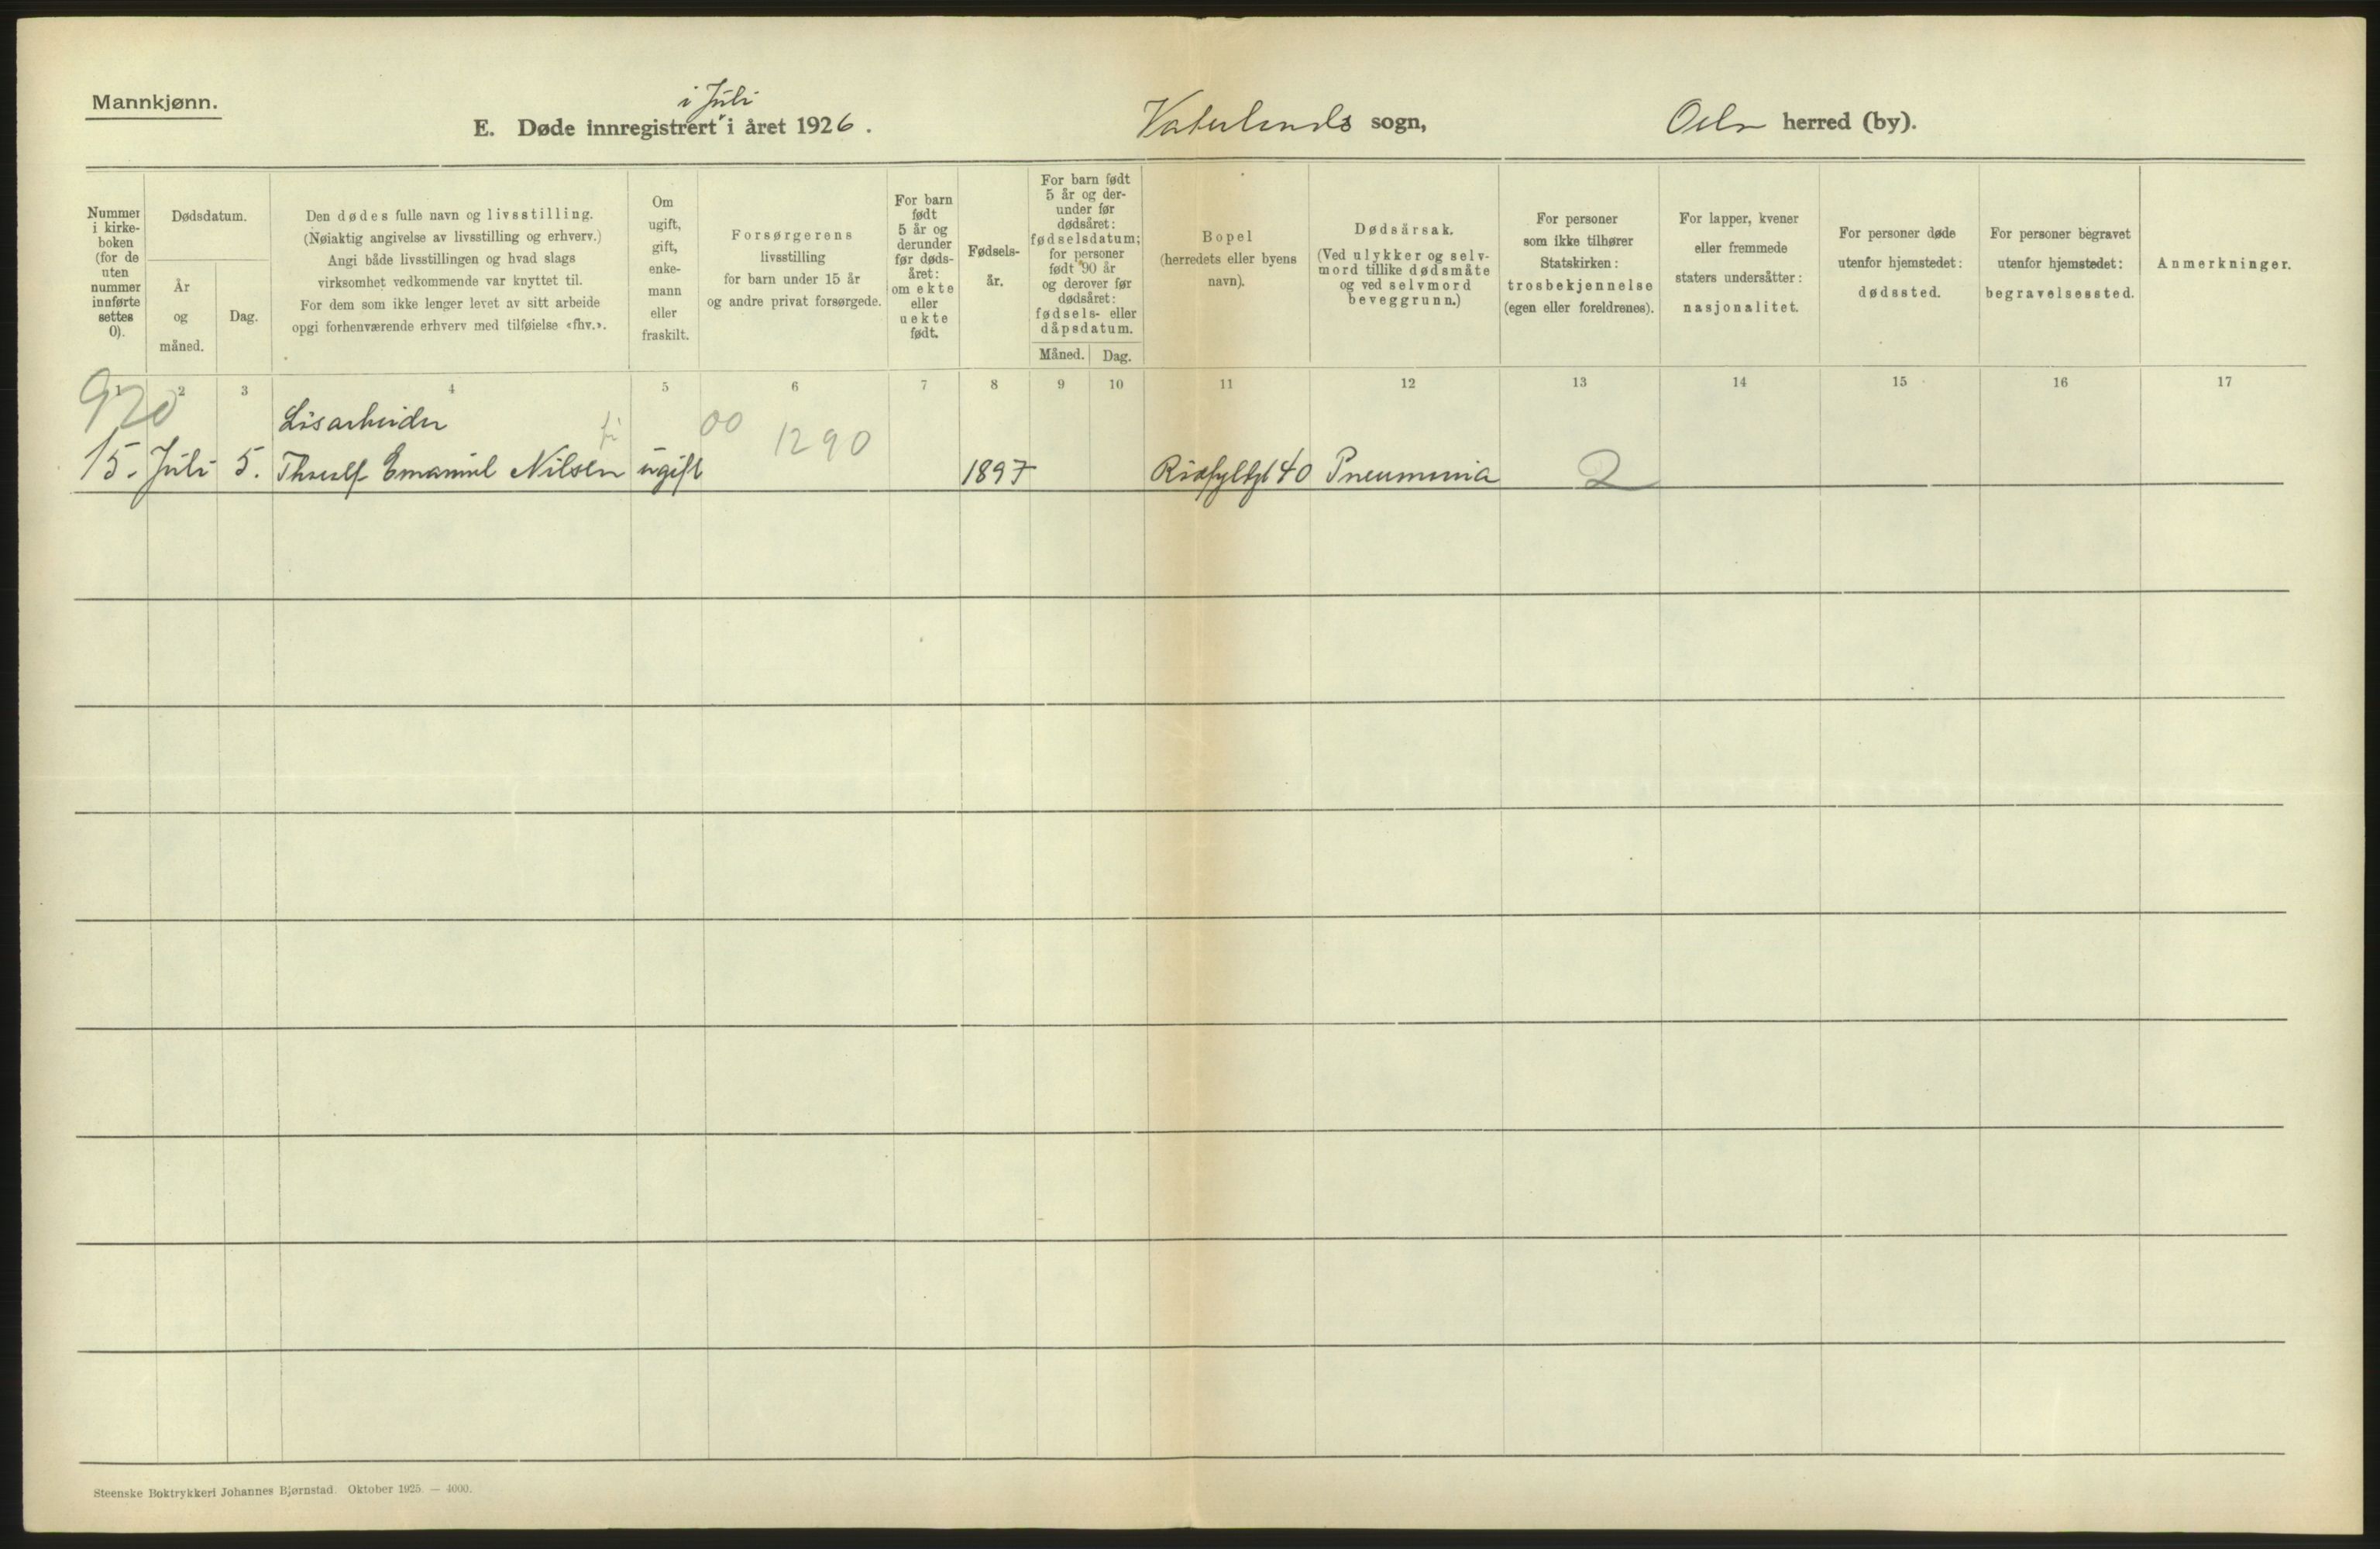 Mannkjønn.
i Juli
E. Døde innregistrert i året 1926.
Vaterlands sogn,
Oslo herred (by).
Nummer i kirkeboken (for de uten nummer innførte settes 0).
Dødsdatum.
År og måned.
Dag.
Den dødes fulle navn og livsstilling.
(Nøiaktig angivelse av livsstilling og erhverv.)
Angi både livsstillingen og hvad slags
virksomhet vedkommende var knyttet til.
For dem som ikke lenger levet av sitt arbeide
opgi forhenværende erhverv med tilføielse «fhv.».
Om ugift, gift, enkemann eller fraskilt.
Forsørgerens
livsstilling
for barn under 15 år
og andre privat forsørgede.
For barn født 5 år og derunder før dødsåret: om ekte eller uekte født.
Fødselsår.
For barn født 5 år og derunder før dødsåret: fødselsdatum; for personer født 90 år og derover før dødsåret: fødsels- eller dåpsdatum.
Måned.
Dag.
Bopel
(herredets eller byens
navn).
Dødsårsak.
(Ved ulykker og selvmord tillike dødsmåte og ved selvmord beveggrunn.)
For personer
som ikke tilhører
Statskirken:
trosbekjennelse
(egen eller foreldrenes).
For lapper, kvener
eller fremmede
staters undersåtter:
nasjonalitet.
For personer døde
utenfor hjemstedet:
dødssted.
For personer begravet
utenfor hjemstedet:
begravelsessted.
Anmerkninger.
1 2 3 4 5 6 7 8 9 10 11 12 13 14 15 16 17
920
Løsarbeider
00 1290
15. Juli 5. Thorolf Emanuel Nilsen ugift 1897 40 Pneumonia 2
Steenske Boktrykkeri Johannes Bjørnstad. Oktober 1925. — 4000.